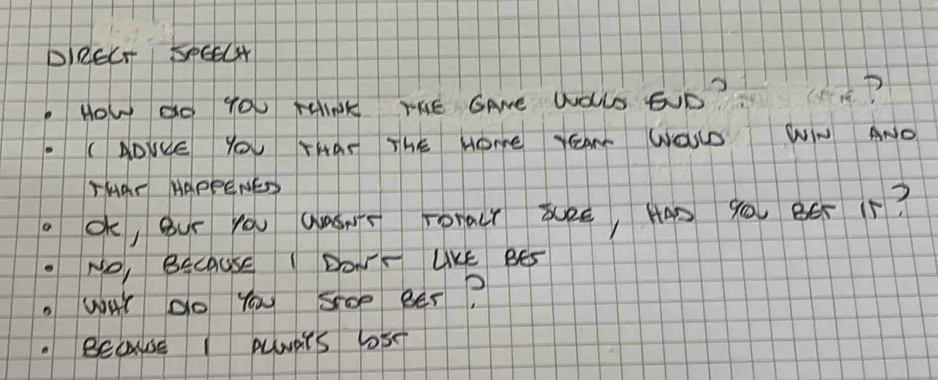 DIRECT SPEECH
• HOW DO YOU THINK THE GAME WOULD END? ?
• I ADVICE YOU THAT THE HOME TEAM WOULD WIN AND
THAT HAPPENED
• OK, BUT YOU WASN'T TOTALY SURE, HAD YOU BET IT?
• NO, BECAUSE I DON'T LIKE BET
• WHY DO YOU STOP BET?
• BECAUSE I ALWAYS LOST